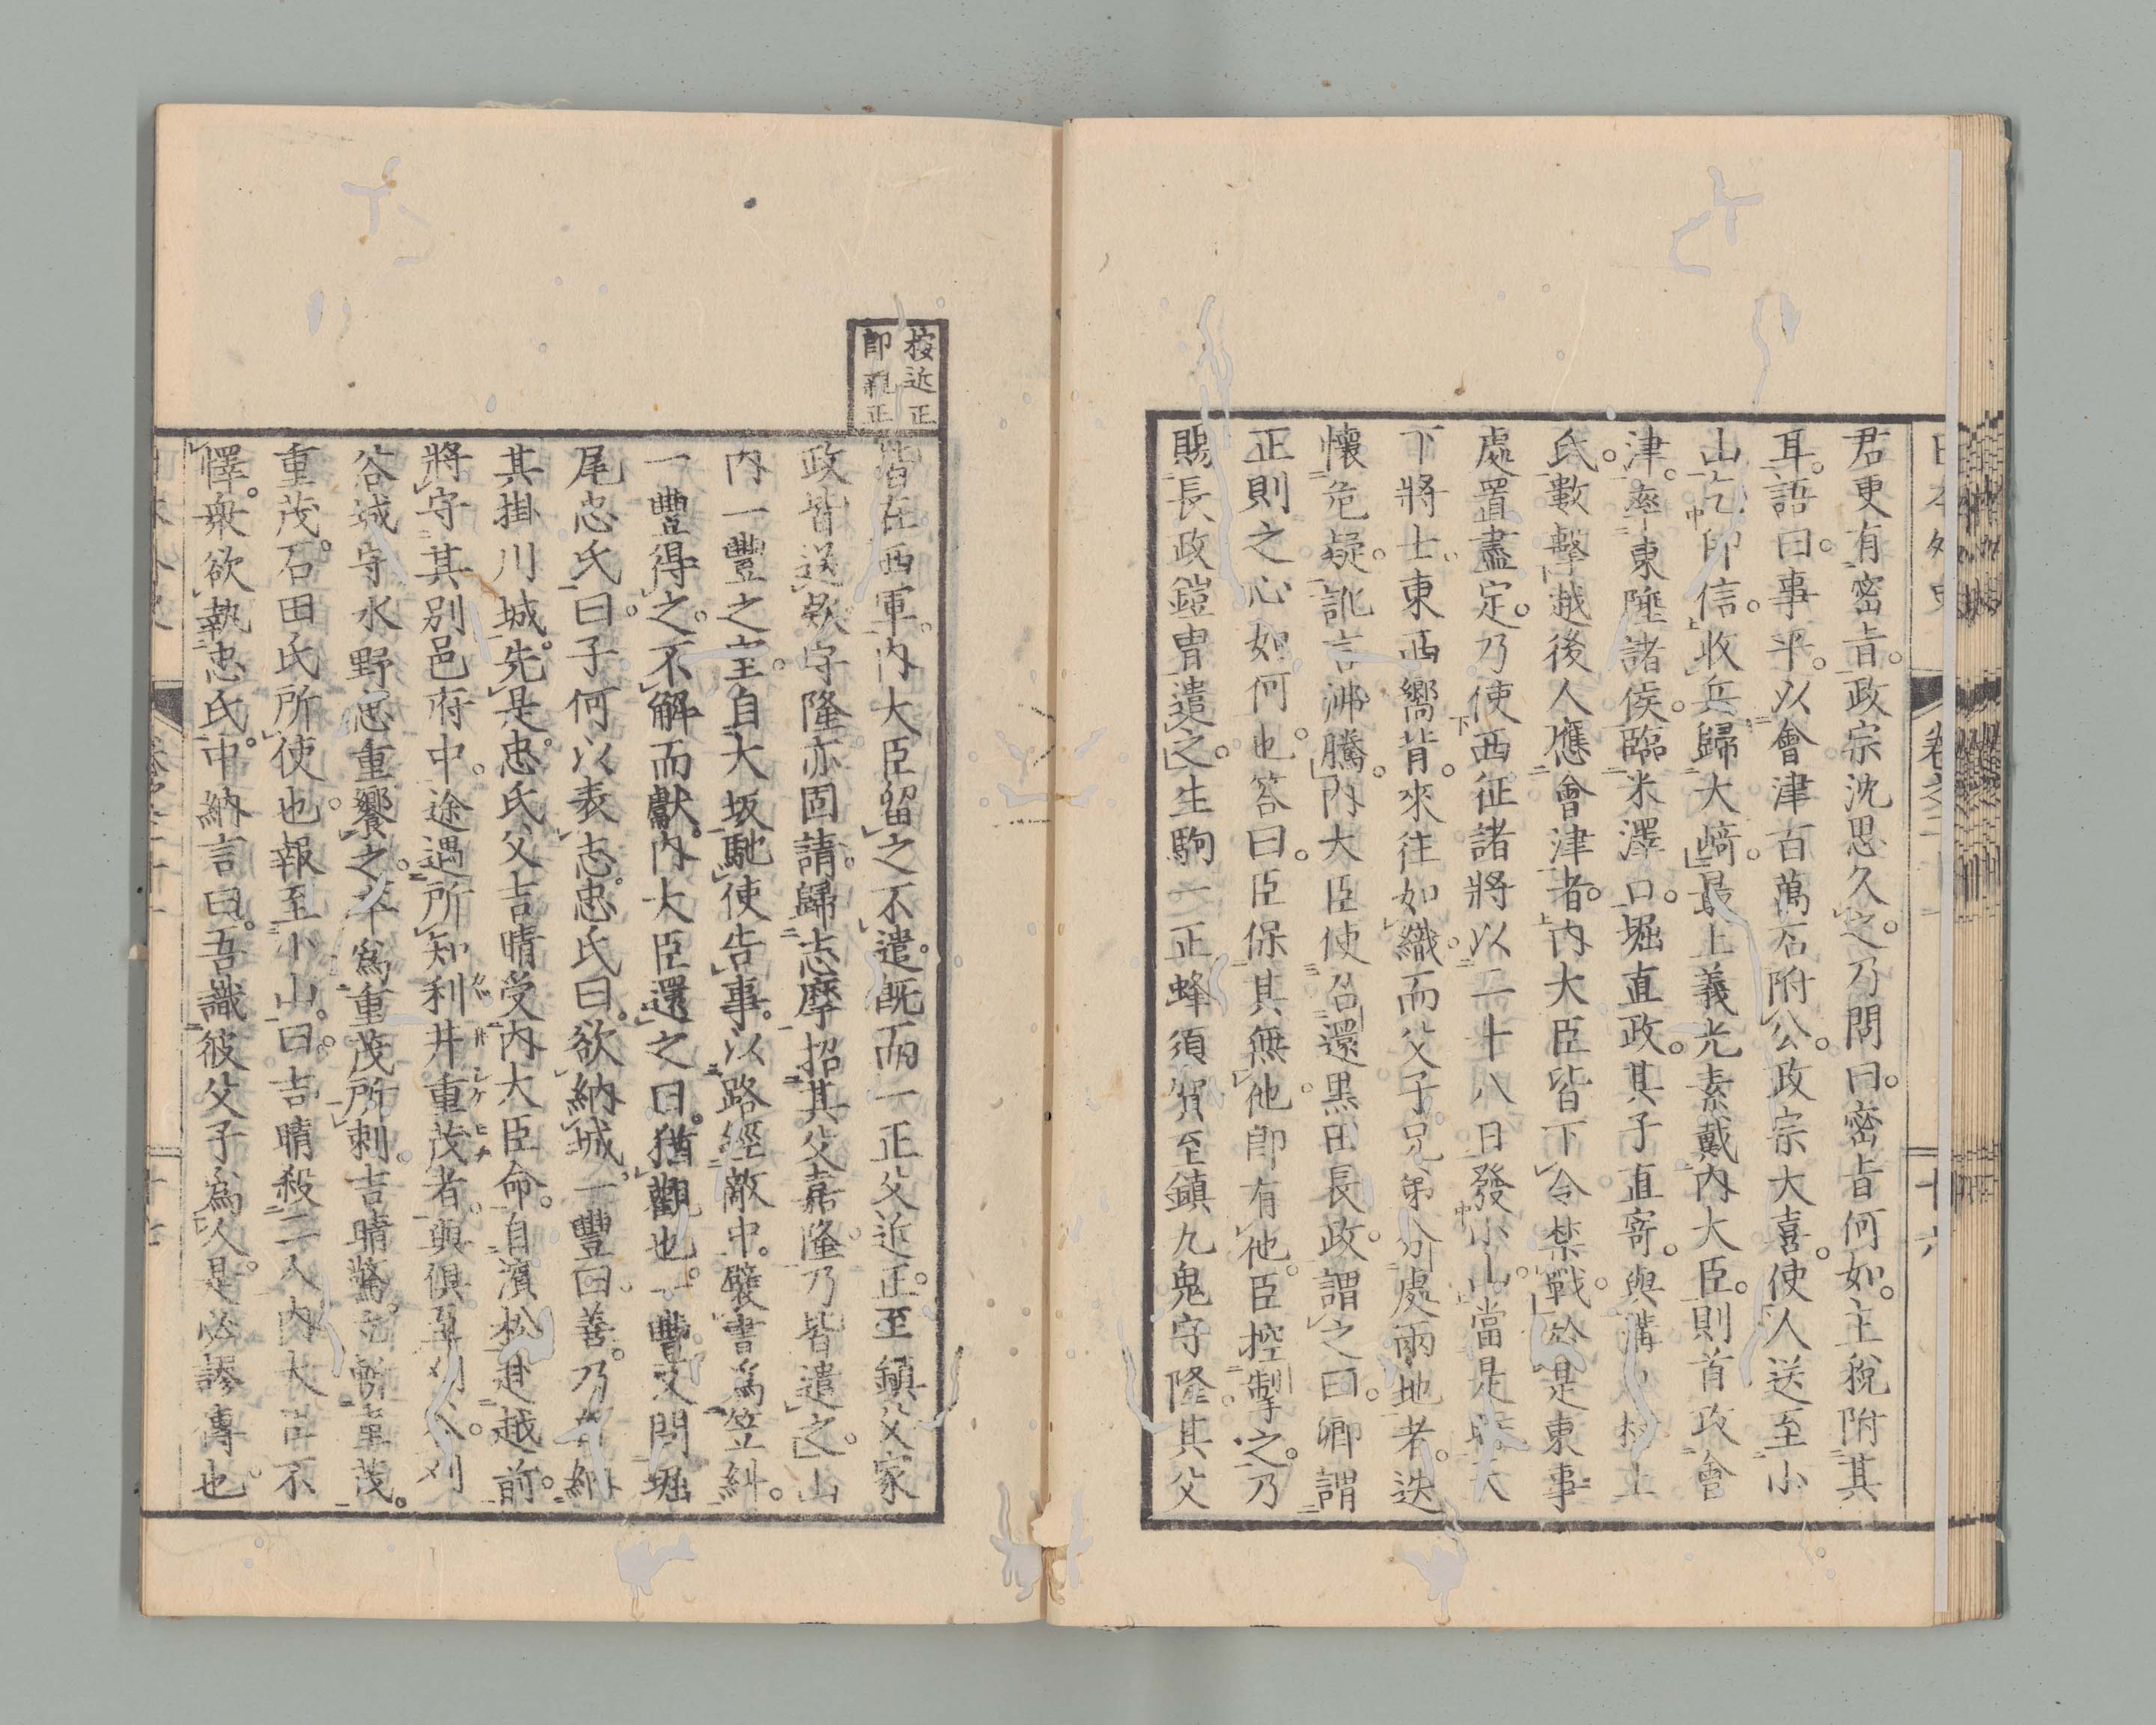 日本外史 卷之二十一 十六
君更有密旨。政宗沈思久之。乃問曰。密旨何如。主稅附其
耳。語曰。事平。以會津百萬石附公。政宗大喜。使人送至小
山乞印信。收兵歸大﨑。最上義光素戴內大臣。則首政會
津。率東陲諸侯。臨米澤口。堀直政。其子直寄。與溝口村上
氏。數擊越後人應會津者。內大臣皆下令禁戰。於是東事
處置盡定。乃使西征諸將以二十八日發小山。當是時天
下將士東西嚮背。來往如織。而父子兄弟分處兩地者。迭
懷危疑。訛言沸騰。內大臣使召還黑田長政。謂之曰。卿謂
正則之心如何也。答曰。臣保其無他。卽有他。臣控制之。乃
賜長政鎧冑遣之。生駒一正蜂須賀至鎮九鬼守隆。其父
按近正
卽親正
皆在西軍。內大臣留之不遣。既而一正父近正。至鎮父家
政皆送欵。守隆亦固請歸志摩招其父嘉隆。乃皆遣之。山
內一豐之室。自大坂馳使告事。以路經敵中。襞書爲笠糾。
一豐得之。不解而獻。內大臣還之曰。猶觀也。一豐又問堀
尾忠氏曰。子何以表志。忠氏曰。欲納城。一豐曰善。乃納
其掛川城。先是。忠氏父吉晴受內大臣命。自濱松赴越前。
將守其別邑府中。途遇所知利井重茂者。與俱至刈谷。刈
谷城守水野忠重饗之。卒爲重茂所刺。吉晴驚起斬重茂。
重茂。石田氏所使也。報至小山。曰。吉晴殺二人。內大臣不
懌。衆欲執忠氏。中納言曰。吾識彼父子爲人。是必謬傳也。